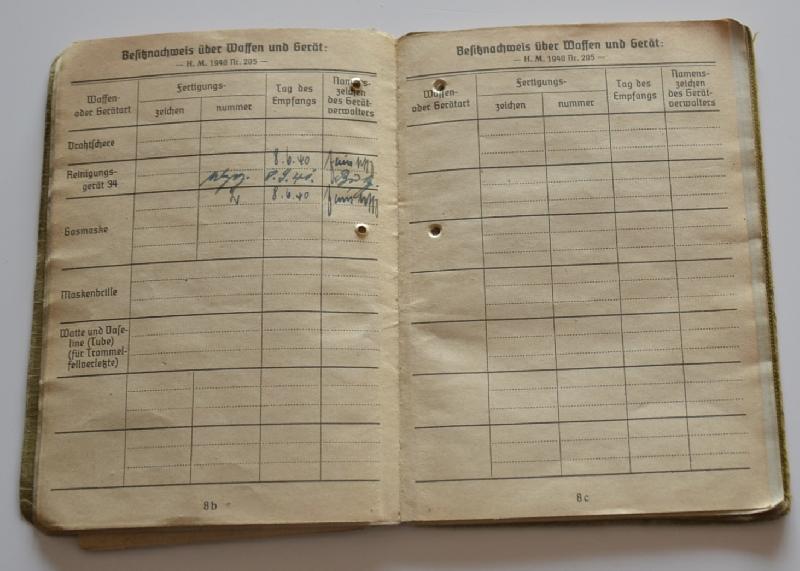 Besitznachweis über Waffen und Gerät:
— H. M. 1940 Nr. 205 —
Waffen-
oder Gerätart
Fertigungs-
zeichen
nummer
Tag des
Empfangs
Namens-
zeichen
des Gerät-
verwalters
Drahtschere
8.6.40
Reinigungs-
gerät 34
Gasmaske
8.6.40
Maskenbrille
Watte und Vase-
line (Tube)
(für Trommel-
fellverletzte)
8b
Besitznachweis über Waffen und Gerät:
— H. M. 1940 Nr. 205 —
Waffen-
oder Gerätart
Fertigungs-
zeichen
nummer
Tag des
Empfangs
Namens-
zeichen
des Gerät-
verwalters
8c